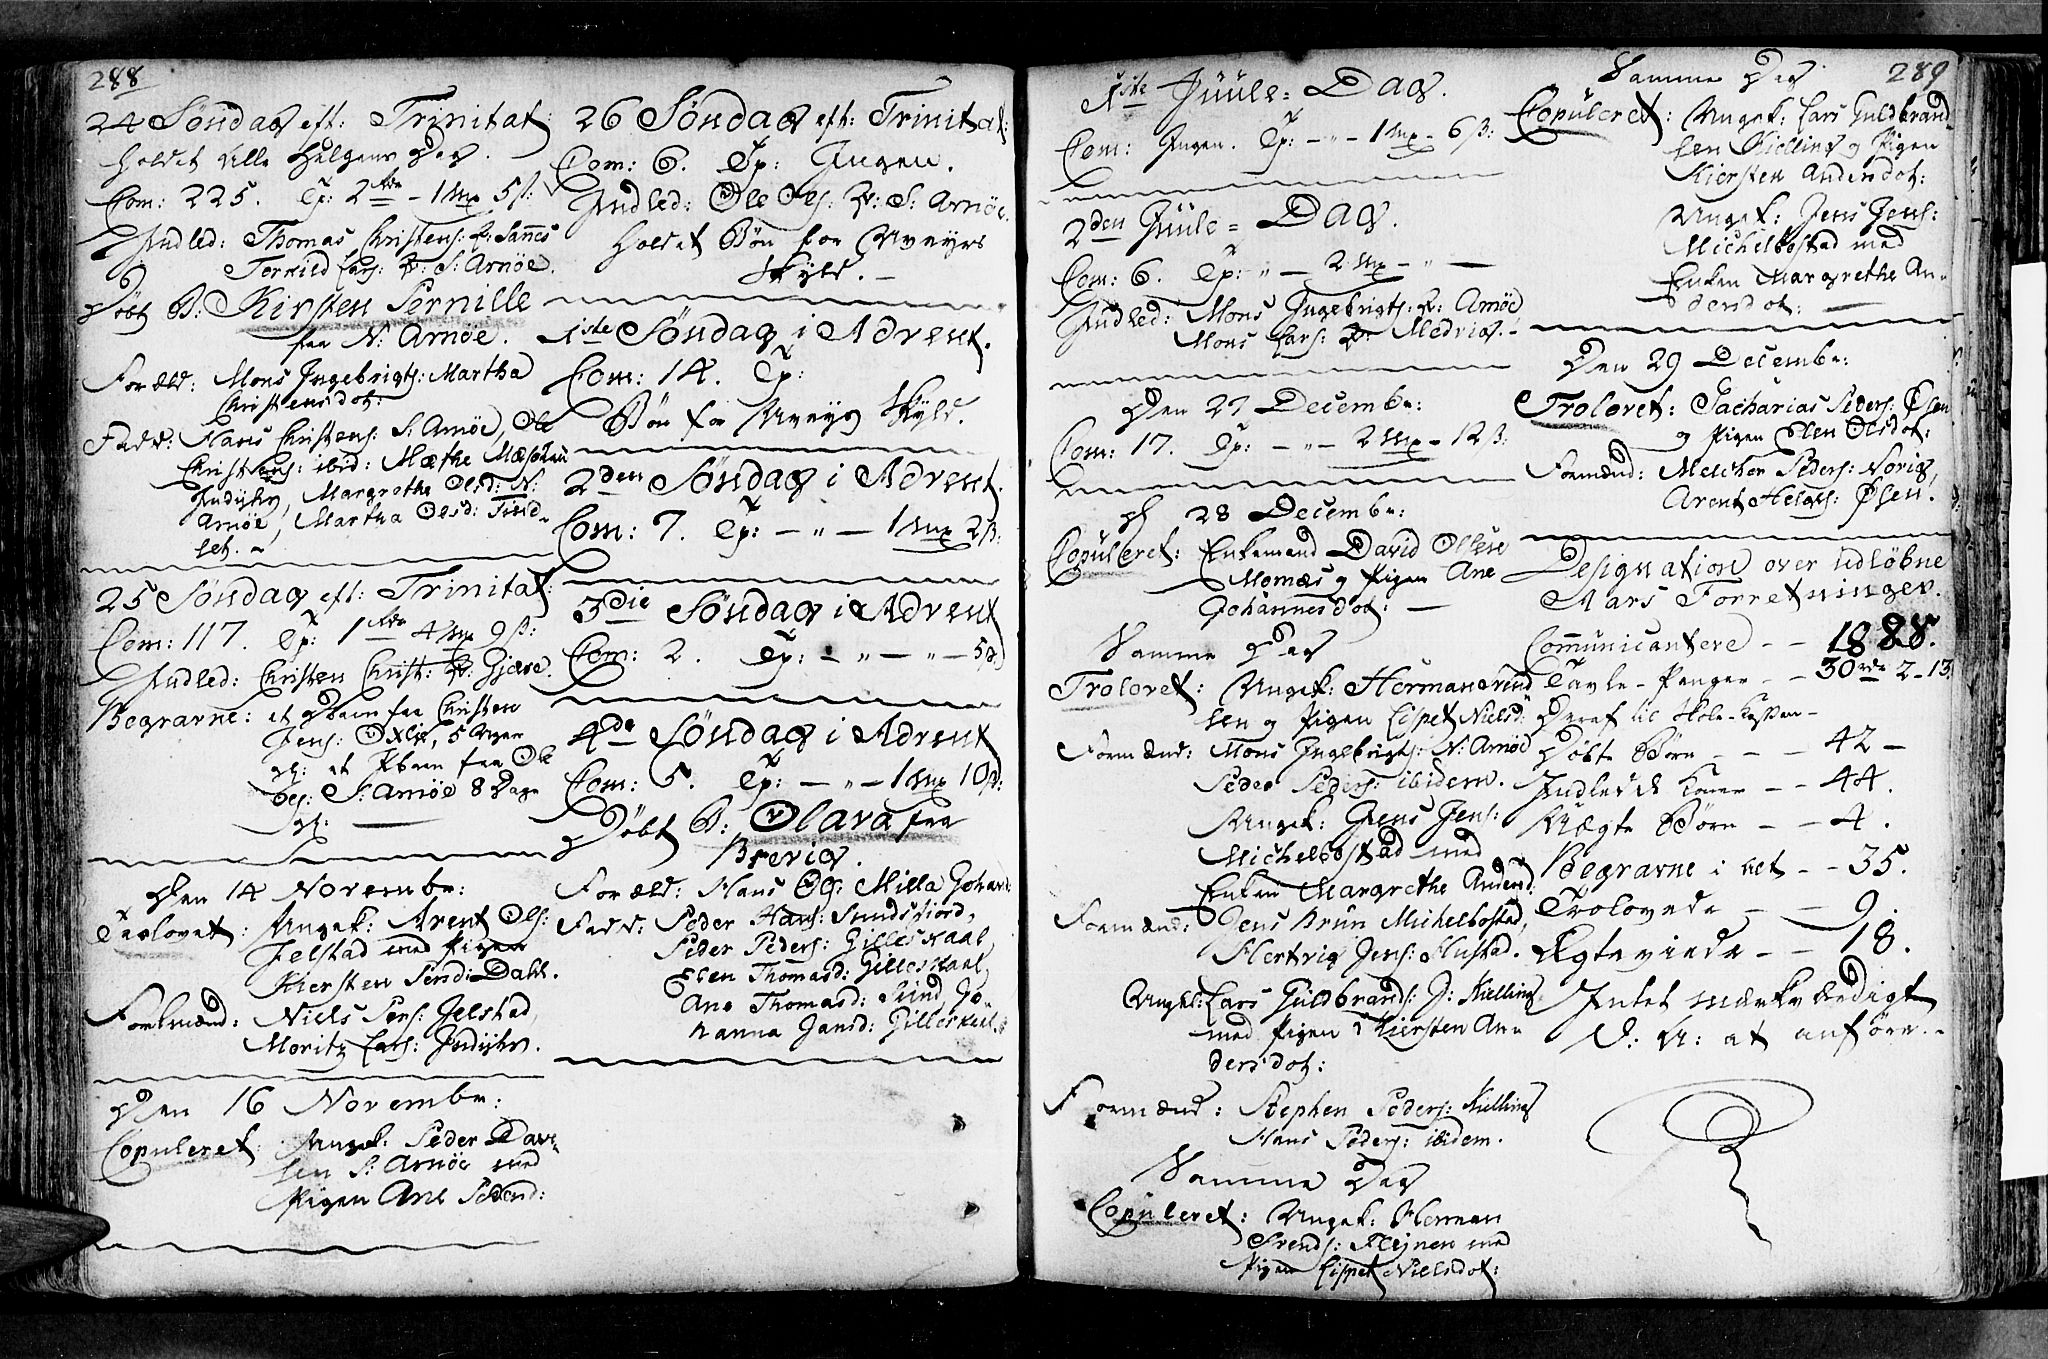 288
24 Søndag eft: Trinitat:
holdet Alle Helgens Dag.
Com: 225. Tp: 2 rdr - 1 mk 5 ß:
Indled: Thomas Christens: K: Sannes
Torkild Lars: K: S: Arnöe.
Døbt B: Kirsten Pernille
fra N: Arnöe.
Foræld: Mons Ingebrigts: Martha
Christensdot:
Fadd: Hans Christens: S: Arnöe, Ole
Christens: ibid: Mæthe
Indyhr, Margrethe Olsd: N:
Arnöe, Martha Olsd: Find-
set. -
25 Søndag eft: Trinitat:
Com: 117. Tp: 1 rdr 4 mk 9 ß:
Indled: Christen Christ: K: Gjære.
Begravne: et Dbarn fra Christen
Jens: 5 Uger
gl: et Pbarn fra Ole
Ols: S: Arnöe 8 Dage
gl:
Den 14 Novembr:
Trolovet: Ungek: Arent Ols:
Jelstad med Pigen
Kiersten Pend: Dahl.
Forlmænd: Niels Pers: Jelstad,
Moritz Lars: Indyhr.
Den 16 Novembr:
Copuleret: Ungek: Peder Davi-
sen S: Arnöe med
Pigen Ane Pedersd:
26 Søndag eft: Trinitat:
Com: 6. Tp: Ingen.
Indled: Ole Ols: K: S: Arnöe.
Holdet Bön for Uveyrs
Skyld. -
1ste Søndag i Advent.
Com: 14. Tp:
Bön for Uveyrs Skyld.
2den Søndag i Advent.
Com: 7. Tp: - " - 1 mk 2 ß:
3die Søndag i Advent
Com: 2. Tp: - " - " - 5 ß.
4de Søndag i Advent
Com: 5. Tp: - " - 1 mk 10 ß:
Døbt B: Olava fra
Brevig.
Foræld: Hans Ols: Milla Johand:
Fadd: Peder Hans: Sundsfiord,
Peder Peders: Gilleskaal,
Elen Thomasd: Gilleskaal,
Ane Thomasd: Jo-
hanna Jansd: Gilleskaal.
1ste Juule = Dag.
Com: Ingen. Tp: - " - 1 mk - 6 ß:
2den Juule = Dag.
Com: 6. Tp: " - 2 mk - " -
Indled: Mons Ingebrigts: K: Arnöe
Mons Lars: K: Medvig. -
Den 27 Decembr:
Com: 17. Tp: - " - 2 mk - 12 ß:
D 28 Decembr:
Copuleret: Enkemand David Ollsen
Mornæs og Pigen Ane
Johannesdot: -
Samme Dag
Trolovet: Ungek: Herman Svend
sen og Pigen Lispet Nielsd:
Formænd: Mons Ingebrigts: N: Arnöe
Peder Peders: ibidem.
Ungek: Jens Jens:
Michelbostad med
Enken Margrethe Andersd:
Formænd: Jens Brun Michelbostad,
Hertvig Jens: Hustad.
Ungk: Lars Guldbrands: Kielling
med Pigen Kiersten An-
dersdot:
Formænd: Stephen Peders: Kielling
Hans Peders: ibidem.
Samme Dag
Copuleret: Ungek: Herman
Svends: Flejnen med
Pigen Lispet Nielsdot:
289
Samme Dag
Copuleret: Ungek: Lars Guldbrand-
sen Kielling og Pigen
Kiersten Andersdot:
Ungek: Jens Jens:
Michelbostad med
Enken Margrethe An-
dersdot:
Den 29 Decembr:
Trolovet: Zacharias Peders: Øsen
og Pigen Elen Olsdot:
Formænd: Melcher Peders: Norvig,
Arent Helges: Øsen.
Designation over udløbne
Aars Forretninger.
Communicantere - - 1828.
Tavle-Penger - - 30 rdr 2 - 13
Deraf til Skole-Kassen -
Døbte Børn - - - 42 -
Indledde Koner - - 44.
Uægte Børn - - 4.
Begravne i alt - - 35.
Trolovede - - 9.
Ægteviede - - 18.
Intet mærkværdigt
d: A: at anføre. -